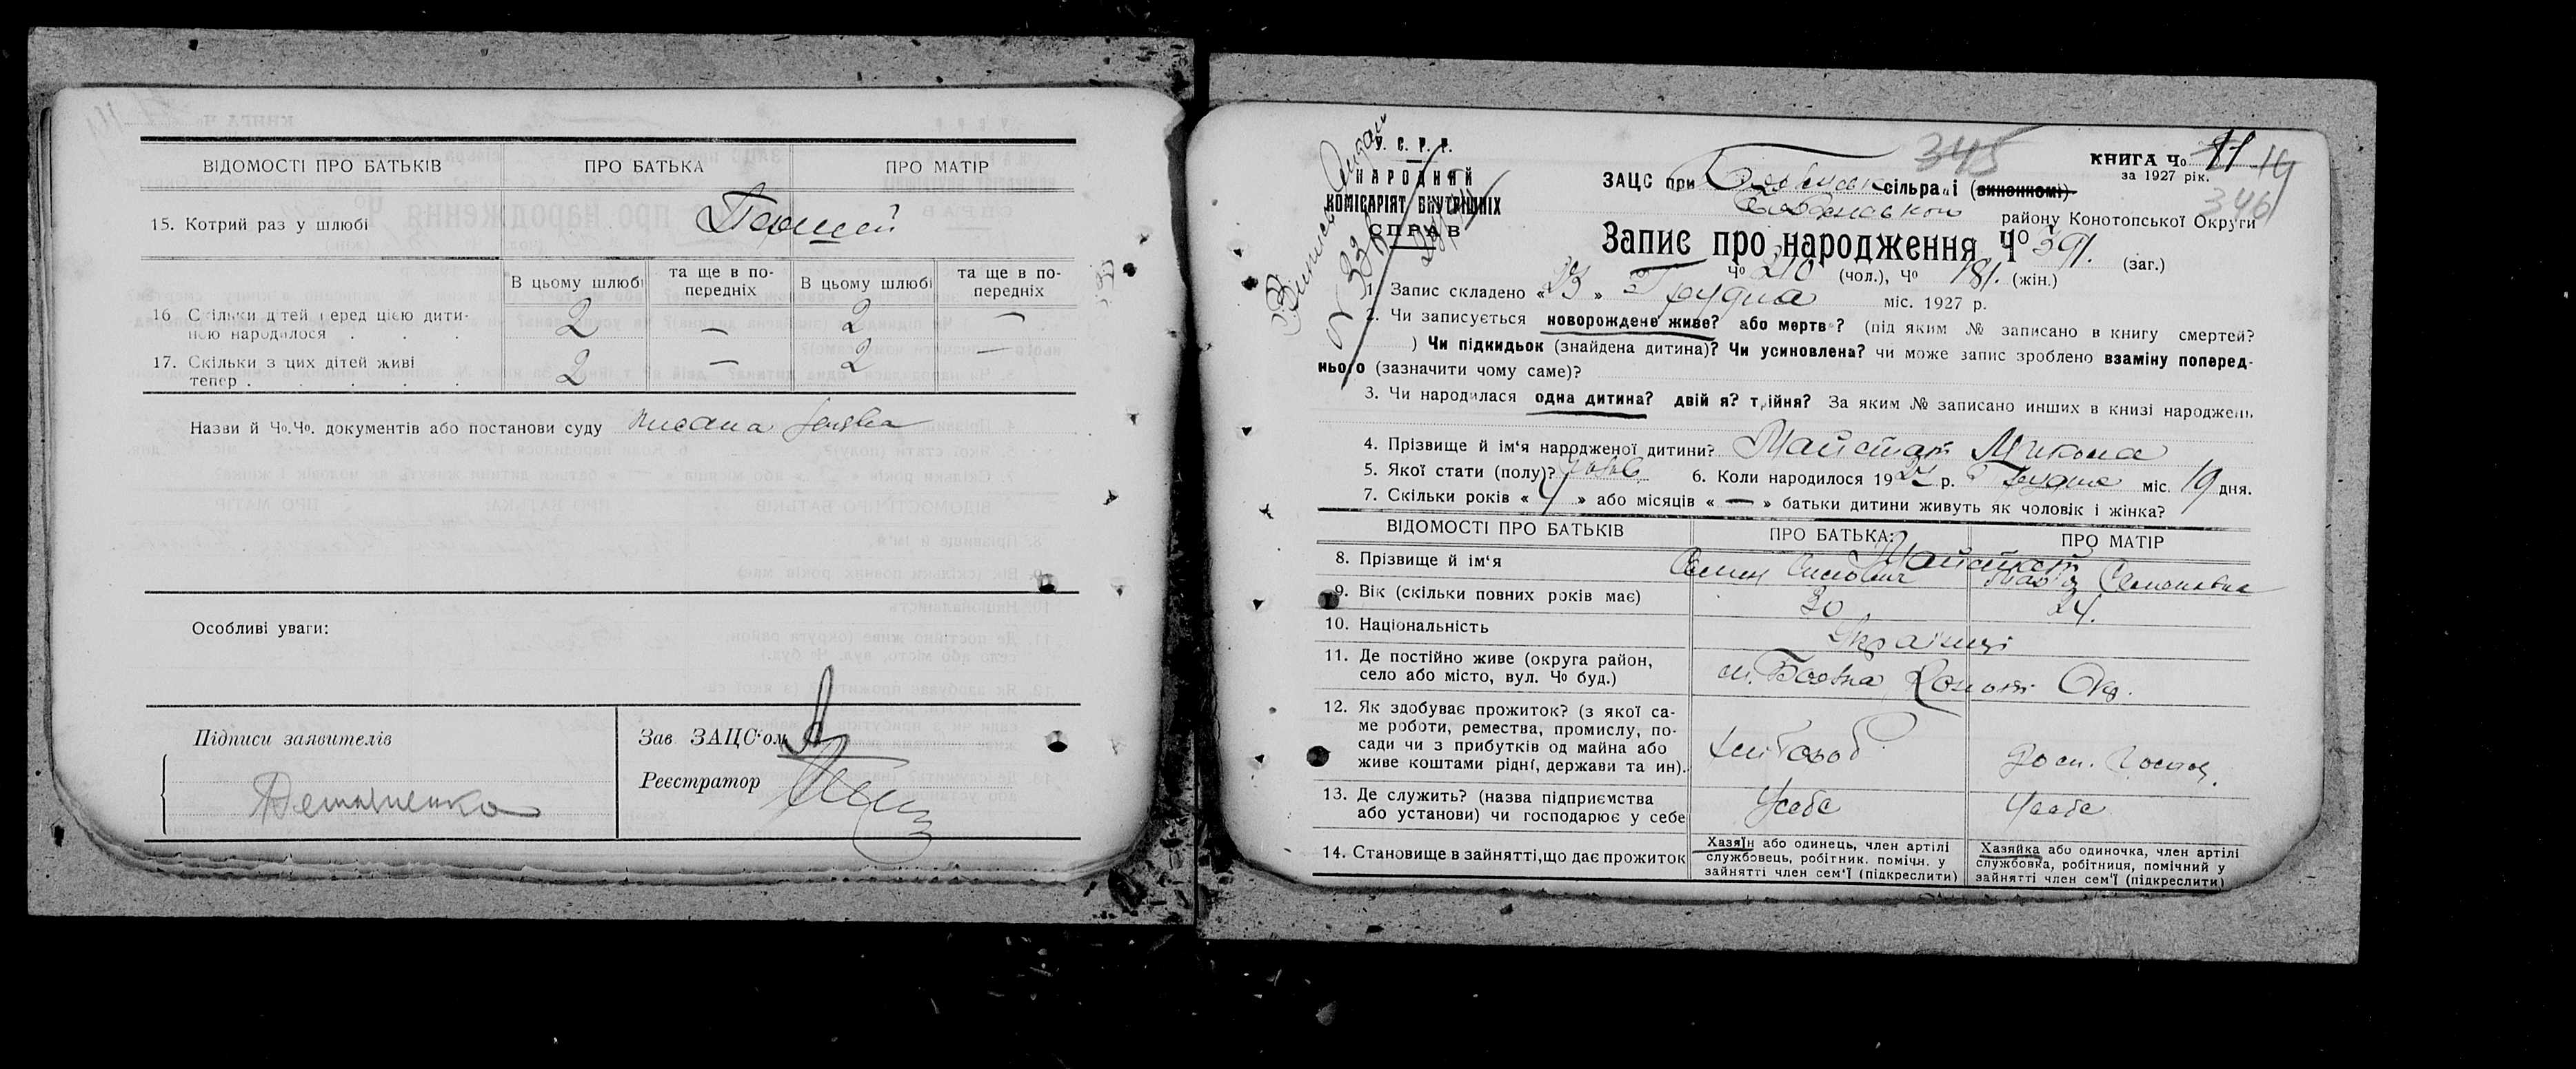 ВІДОМОСТІ ПРО БАТЬКІВ ПРО БАТЬКА ПРО МАТІР
15. Котрий раз у шлюбі Перший
В цьому шлюбі та ще в по-передніх В цьому шлюбі та ще в по-передніх
16 Скільки дітей перед цією дити-
ною народилося . . . 2 — 2 —
17. Скільки з цих дітей живі
тепер . . . . . . 2 — 2 —
Назви й Чо.Чо. документів або постанови суду
Особливі уваги:
Підписи заявителів
Зав ЗАЦС'ом
Реєстратор
У. С. Р. Р.
НАРОДНИЙ
КОМІСАРІЯТ ВНУТРІШНІХ
СПРАВ
345
КНИГА Чо 11 14
за 1927 рік.
346
ЗАЦС при сільраді (виконкомі)
району Конотопської Округи
Запис про народження Чо 391. (заг.)
Чо 210 (чол.), Чо 181. (жін.)
1. Запис складено «23» Грудня міс. 1927 р.
2. Чи записується новорождене живе? або мертве? (під яким № записано в книгу смертей?
) Чи підкидьок (знайдена дитина)? Чи усиновлена? чи може запис зроблено взаміну поперед-
нього (зазначити чому саме)?
3. Чи народилася одна дитина? двійня? трійня? За яким № записано инших в книзі народжень
4. Прізвище й ім'я народженої дитини? Майстат Микола
5. Якої стати (полу)? 6. Коли народилося 1927 р. Грудня міс. 19 дня.
7. Скільки років « 4 » або місяців « — » батьки дитини живуть як чоловік і жінка?
ВІДОМОСТІ ПРО БАТЬКІВ ПРО БАТЬКА: ПРО МАТІР
Майстат
8. Прізвище й ім'я Семен Семоновна
9. Вік (скільки повних років має) 30 24.
10. Національність Українці
11. Де постійно живе (округа район,
село або місто, вул. Чо буд.) Конот. Окр.
12. Як здобуває прожиток? (з якої са-
ме роботи, ремества, промислу, по-
сади чи з прибутків од майна або
живе коштами рідні, держави та ин). Хлібороб
13. Де служить? (назва підприємства
або установи) чи господарює у себе Усебе Усебе
14. Становище в зайнятті, що дає прожиток
Хазяїн або одинець, член артілі
службовець, робітник. помічн. у
зайнятті член сем'ї (підкреслити)
Хазяйка або одиночка, член артілі
службовка, робітниця, помічний у
зайнятті член сем'ї (підкреслити)